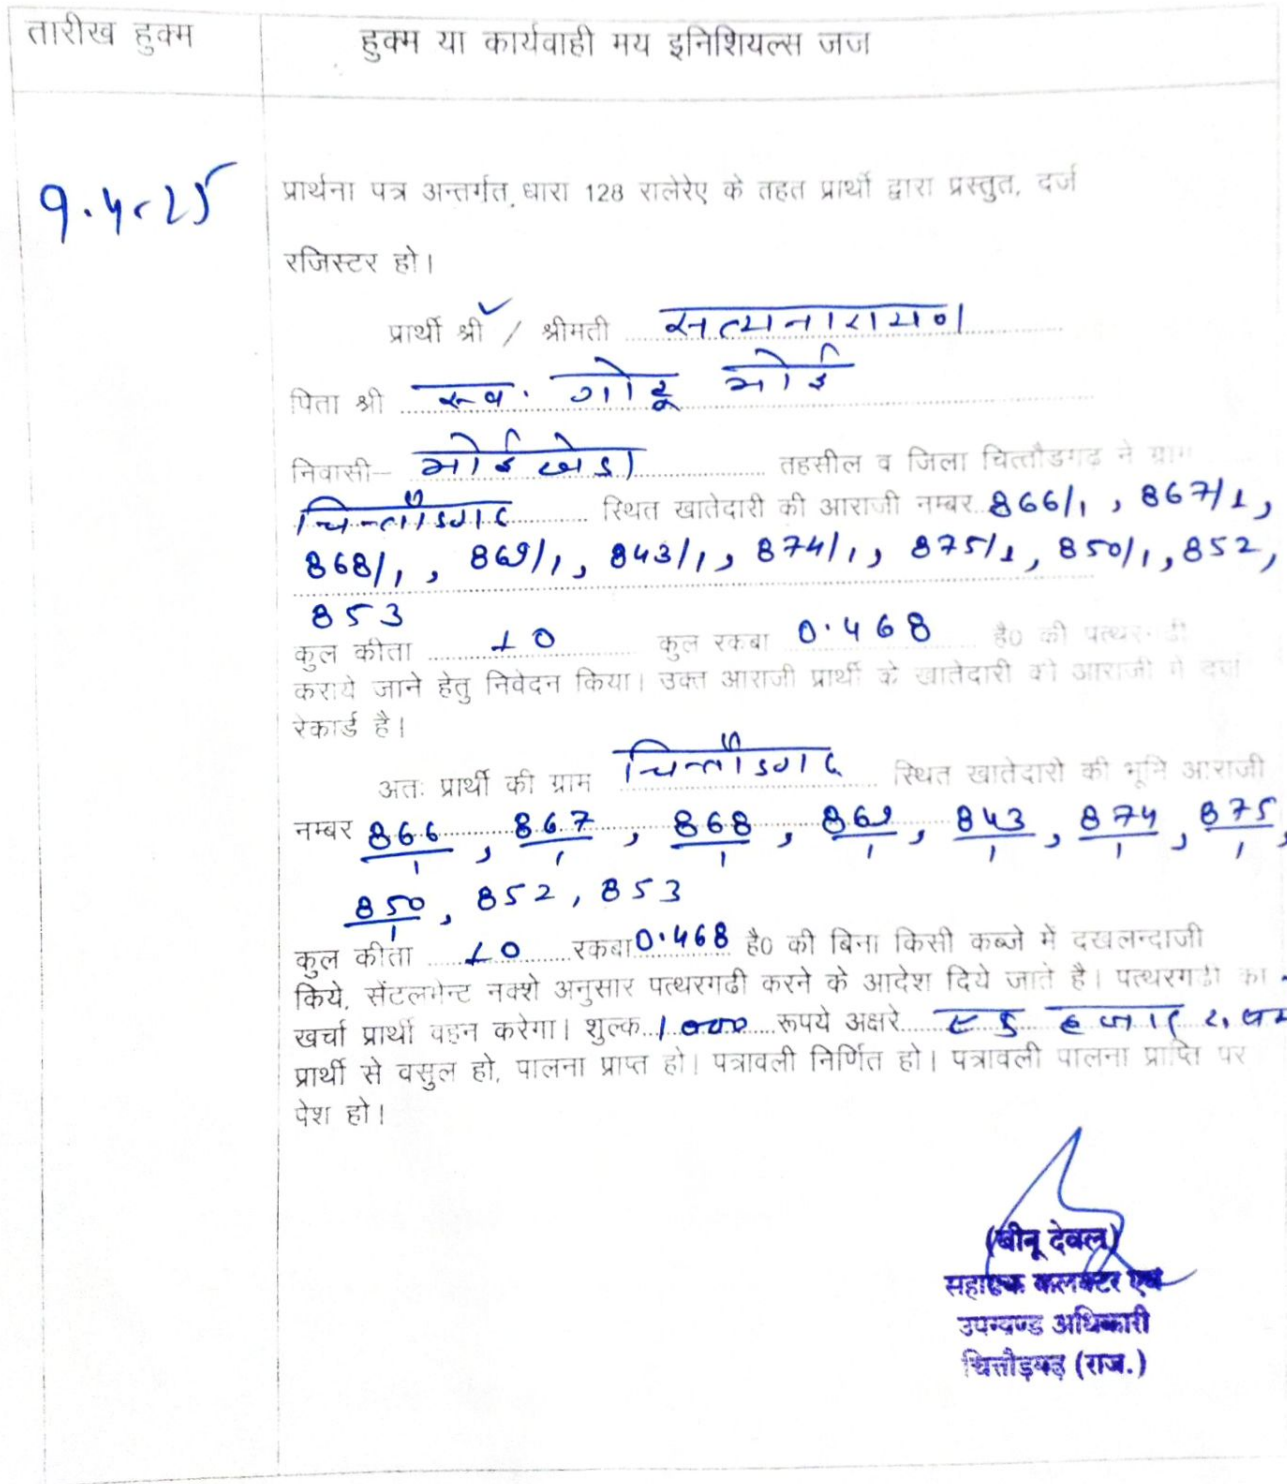 तारीख हुक्म
हुक्म या कार्यवाही मय इनिशियल्स जज
9.4.25
प्रार्थना पत्र अन्तर्गत धारा 128 रालेरेए के तहत प्रार्थी द्वारा प्रस्तुत, दर्ज
रजिस्टर हो।
प्रार्थी श्री / श्रीमती सत्यनारायण
पिता श्री स्व. गोटू भोई
निवासी– भोईखेडा तहसील व जिला चित्तौडगढ ने ग्राम
चित्तौडगढ स्थित खातेदारी की आराजी नम्बर 866/1, 867/1,
868/1, 869/1, 843/1, 874/1, 875/1, 850/1, 852,
853
कुल कीता 10 कुल रकबा 0.468 है0 की पत्थरगढी
कराये जाने हेतु निवेदन किया। उक्त आराजी प्रार्थी के खातेदारी की आराजी में दर्ज
रेकार्ड है।
अतः प्रार्थी की ग्राम चित्तौडगढ स्थित खातेदारी की भूमि आराजी
नम्बर 866/1, 867/1, 868/1, 869/1, 843/1, 874/1, 875/1,
850/1, 852, 853
कुल कीता 10 रकबा 0.468 है0 की बिना किसी कब्जे में दखलन्दाजी
किये, सेंटलमेन्ट नक्शे अनुसार पत्थरगढी करने के आदेश दिये जाते है। पत्थरगढी का
खर्चा प्रार्थी वहन करेगा। शुल्क 1000 रूपये अक्षरे एक हजार
प्रार्थी से वसुल हो, पालना प्राप्त हो। पत्रावली निर्णित हो। पत्रावली पालना प्राप्ति पर
पेश हो।
(बीनू देवल)
सहायक कलक्टर एवं
उपखण्ड अधिकारी
चित्तौड़गढ़ (राज.)